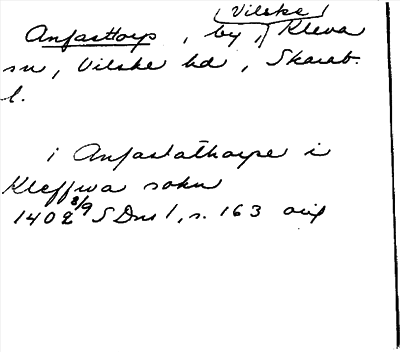 Vilske
Anfasttorp, by i, Kleva
sn, Vilske hd, Skarab.
l.
i Anfastathorpe i
Kleffwa sokn
1402 8/9 SDns 1, s. 163 orig